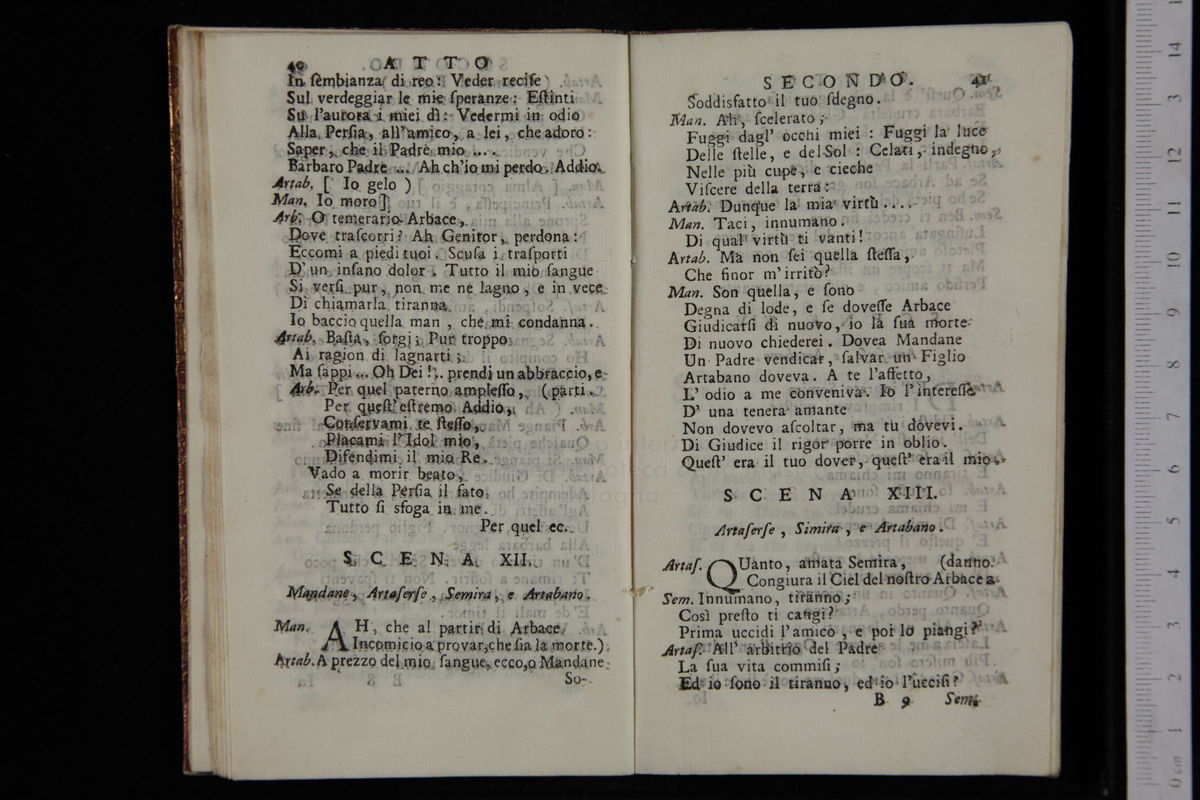 40 A T T O
In ſembianza di reo: Veder reciſe
Sul verdeggiar le mie ſperanze: Eſtinti
Su l'aurora i miei dì: Vedermi in odio
Alla Perſia, all'amico, a lei, che adoro:
Saper, che il Padre mio ....
Barbaro Padre ... Ah ch'io mi perdo. Addio.
Artab. [ Io gelo )
Man. Io moro]
Arb. O temerario Arbace,
Dove traſcorri? Ah Genitor, perdona:
Eccomi a piedi tuoi. Scuſa i traſporti
D' un inſano dolor. Tutto il mio ſangue
Si verſi pur, non me ne lagno, e in vece
Di chiamarla tiranna
Io baccio quella man, che mi condanna.
Artab. Baſta, ſorgi; Pur troppo
Ai ragion di lagnarti;
Ma ſappi ... Oh Dei!.. prendi un abbraccio, e
Arb. Per quel paterno ampleſſo, (parti.
Per queſt'eſtremo Addio,
Conſervami te ſteſſo,
Placami l'Idol mio,
Difendimi il mio Re.
Vado a morir beato,
Se della Perſia il fato
Tutto ſi sfoga in me.
Per quel ec.
S C E N A XII.
Mandane, Artaſerſe, Semira, e Artabano.
Man. AH, che al partir di Arbace
Incomicio a provar, che ſia la morte.)
Artab. A prezzo del mio ſangue, ecco, o Mandane
So-
S E C O N D O. 41
Soddisfatto il tuo ſdegno.
Man. Ah, ſcelerato;
Fuggi dagl' occhi miei: Fuggi la luce
Delle ſtelle, e del Sol: Celati, indegno,
Nelle più cupe, e cieche
Viſcere della terra:
Artab. Dunque la mia virtù ....
Man. Taci, innumano.
Di qual virtù ti vanti!
Artab. Ma non ſei quella ſteſſa,
Che finor m'irritò?
Man. Son quella, e ſono
Degna di lode, e ſe doveſſe Arbace
Giudicarſi di nuovo, io la ſua morte
Di nuovo chiederei. Dovea Mandane
Un Padre vendicar, ſalvar un Figlio
Artabano doveva. A te l'affetto,
L' odio a me conveniva. Io l'intereſſe
D' una tenera amante
Non dovevo aſcoltar, ma tu dovevi.
Di Giudice il rigor porre in oblio.
Queſt' era il tuo dover, queſt' era il mio.
S C E N A XIII.
Artaſerſe, Simira, e Artabano.
Artaſ. QUanto, amata Semira, (danno.
Congiura il Ciel del noſtro Arbace a
Sem. Innumano, tiranno;
Così preſto ti cangi?
Prima uccidi l'amico, e poi lo piangi?
Artaſ. All' arbitrio del Padre
La ſua vita commiſi;
Ed io ſono il tiranno, ed io l'ucciſi?
B 9 Sem.